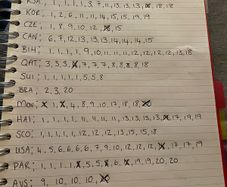 RSA; 1, 1, 1, 1, 3, 7, 11, 13, 13, 13, 18, 18
KOR; 1, 2, 6, 11, 11, 14, 15, 15, 19, 19
CZE; 1, 8, 9, 10, 12, 15
CAN; 6, 7, 12, 13, 13, 13, 14, 14, 14, 15
BIH; 1, 1, 1, 1, 9, 10, 11, 11, 11, 12, 12, 12, 12, 13, 18
QAT; 3, 3, 3, 7, 7, 7, 8, 8, 8, 8, 18
SUI; 1, 1, 1, 1, 1, 5, 5, 8
BRA; 2, 3, 20
MOR; 1, 4, 8, 9, 10, 13, 18, 18
HAI; 1, 1, 1, 1, 11, 11, 12, 13, 13, 13, 13, 17, 19, 19
SCO; 1, 1, 1, 1, 1, 12, 12, 12, 13, 15, 15, 18
USA; 4, 5, 6, 6, 6, 6, 7, 9, 10, 12, 12, 12, 17, 17, 19
PAR; 1, 1, 1, 1, 5, 5, 6, 19, 19, 20, 20
AUS; 9, 10, 10, 10